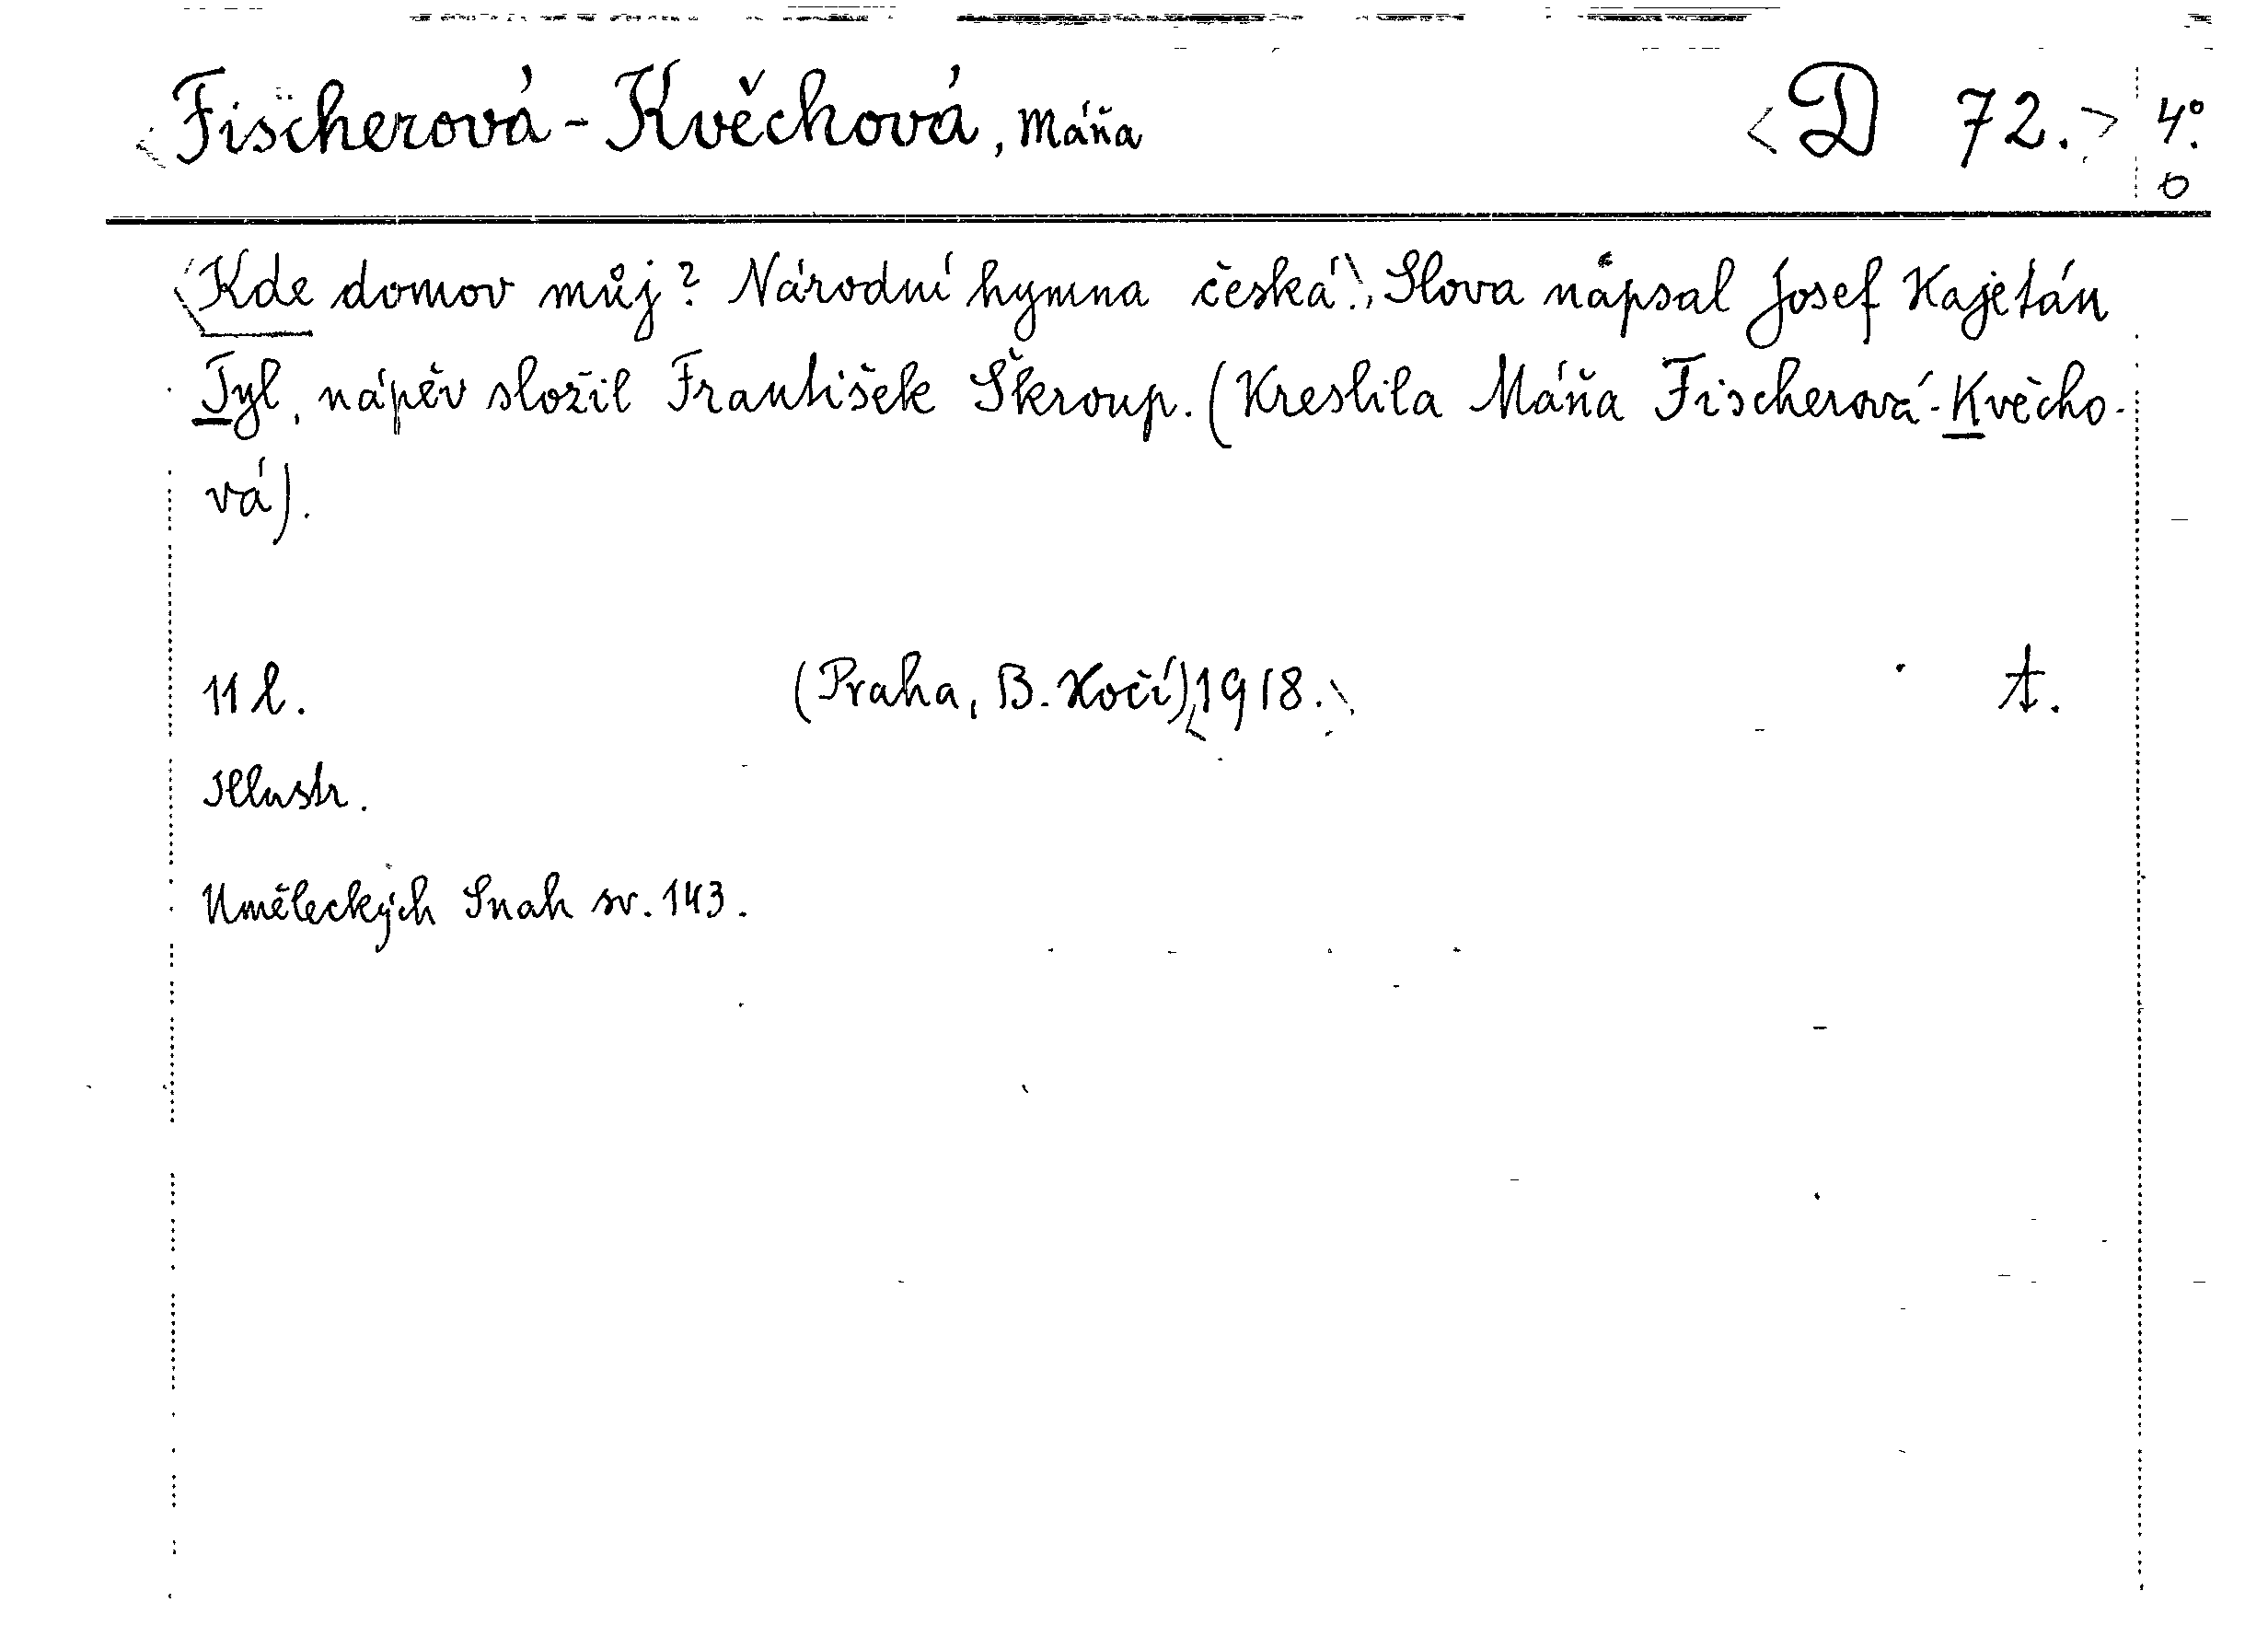 Fischerová-Kvěchová, Máňa <D 72.> 4°.
o
Kde domov můj? Národní hymna česká. Slova napsal Josef Kajetán
Tyl, nápěv složil František Škroup. (Kreslila Máňa Fischerová-Kvěcho-
vá).
11 l. (Praha, B. Kočí) 1918. A.
Illustr.
Uměleckých Snah sv. 143.